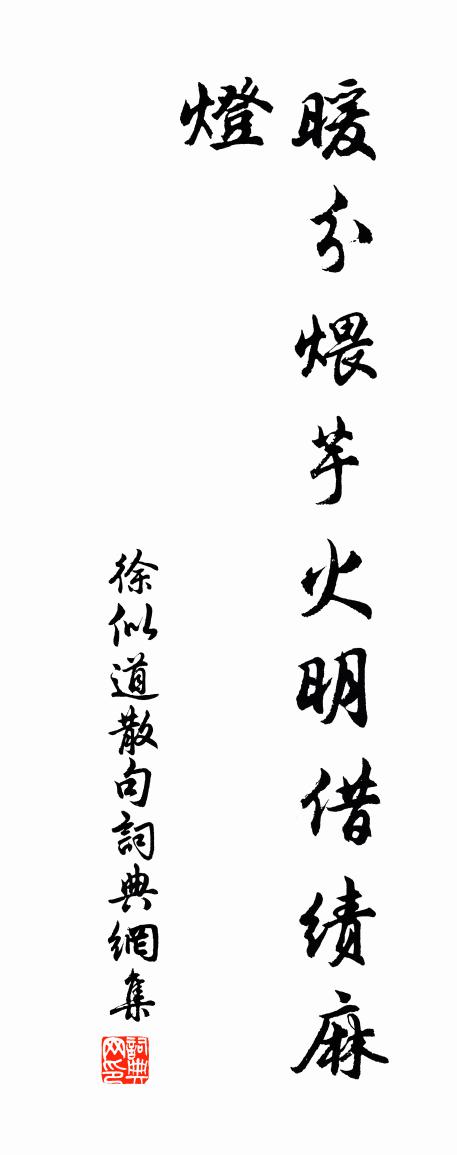 暖分煨芋火明借績麻
燈
徐似道散句詞典網集
詞典
网印